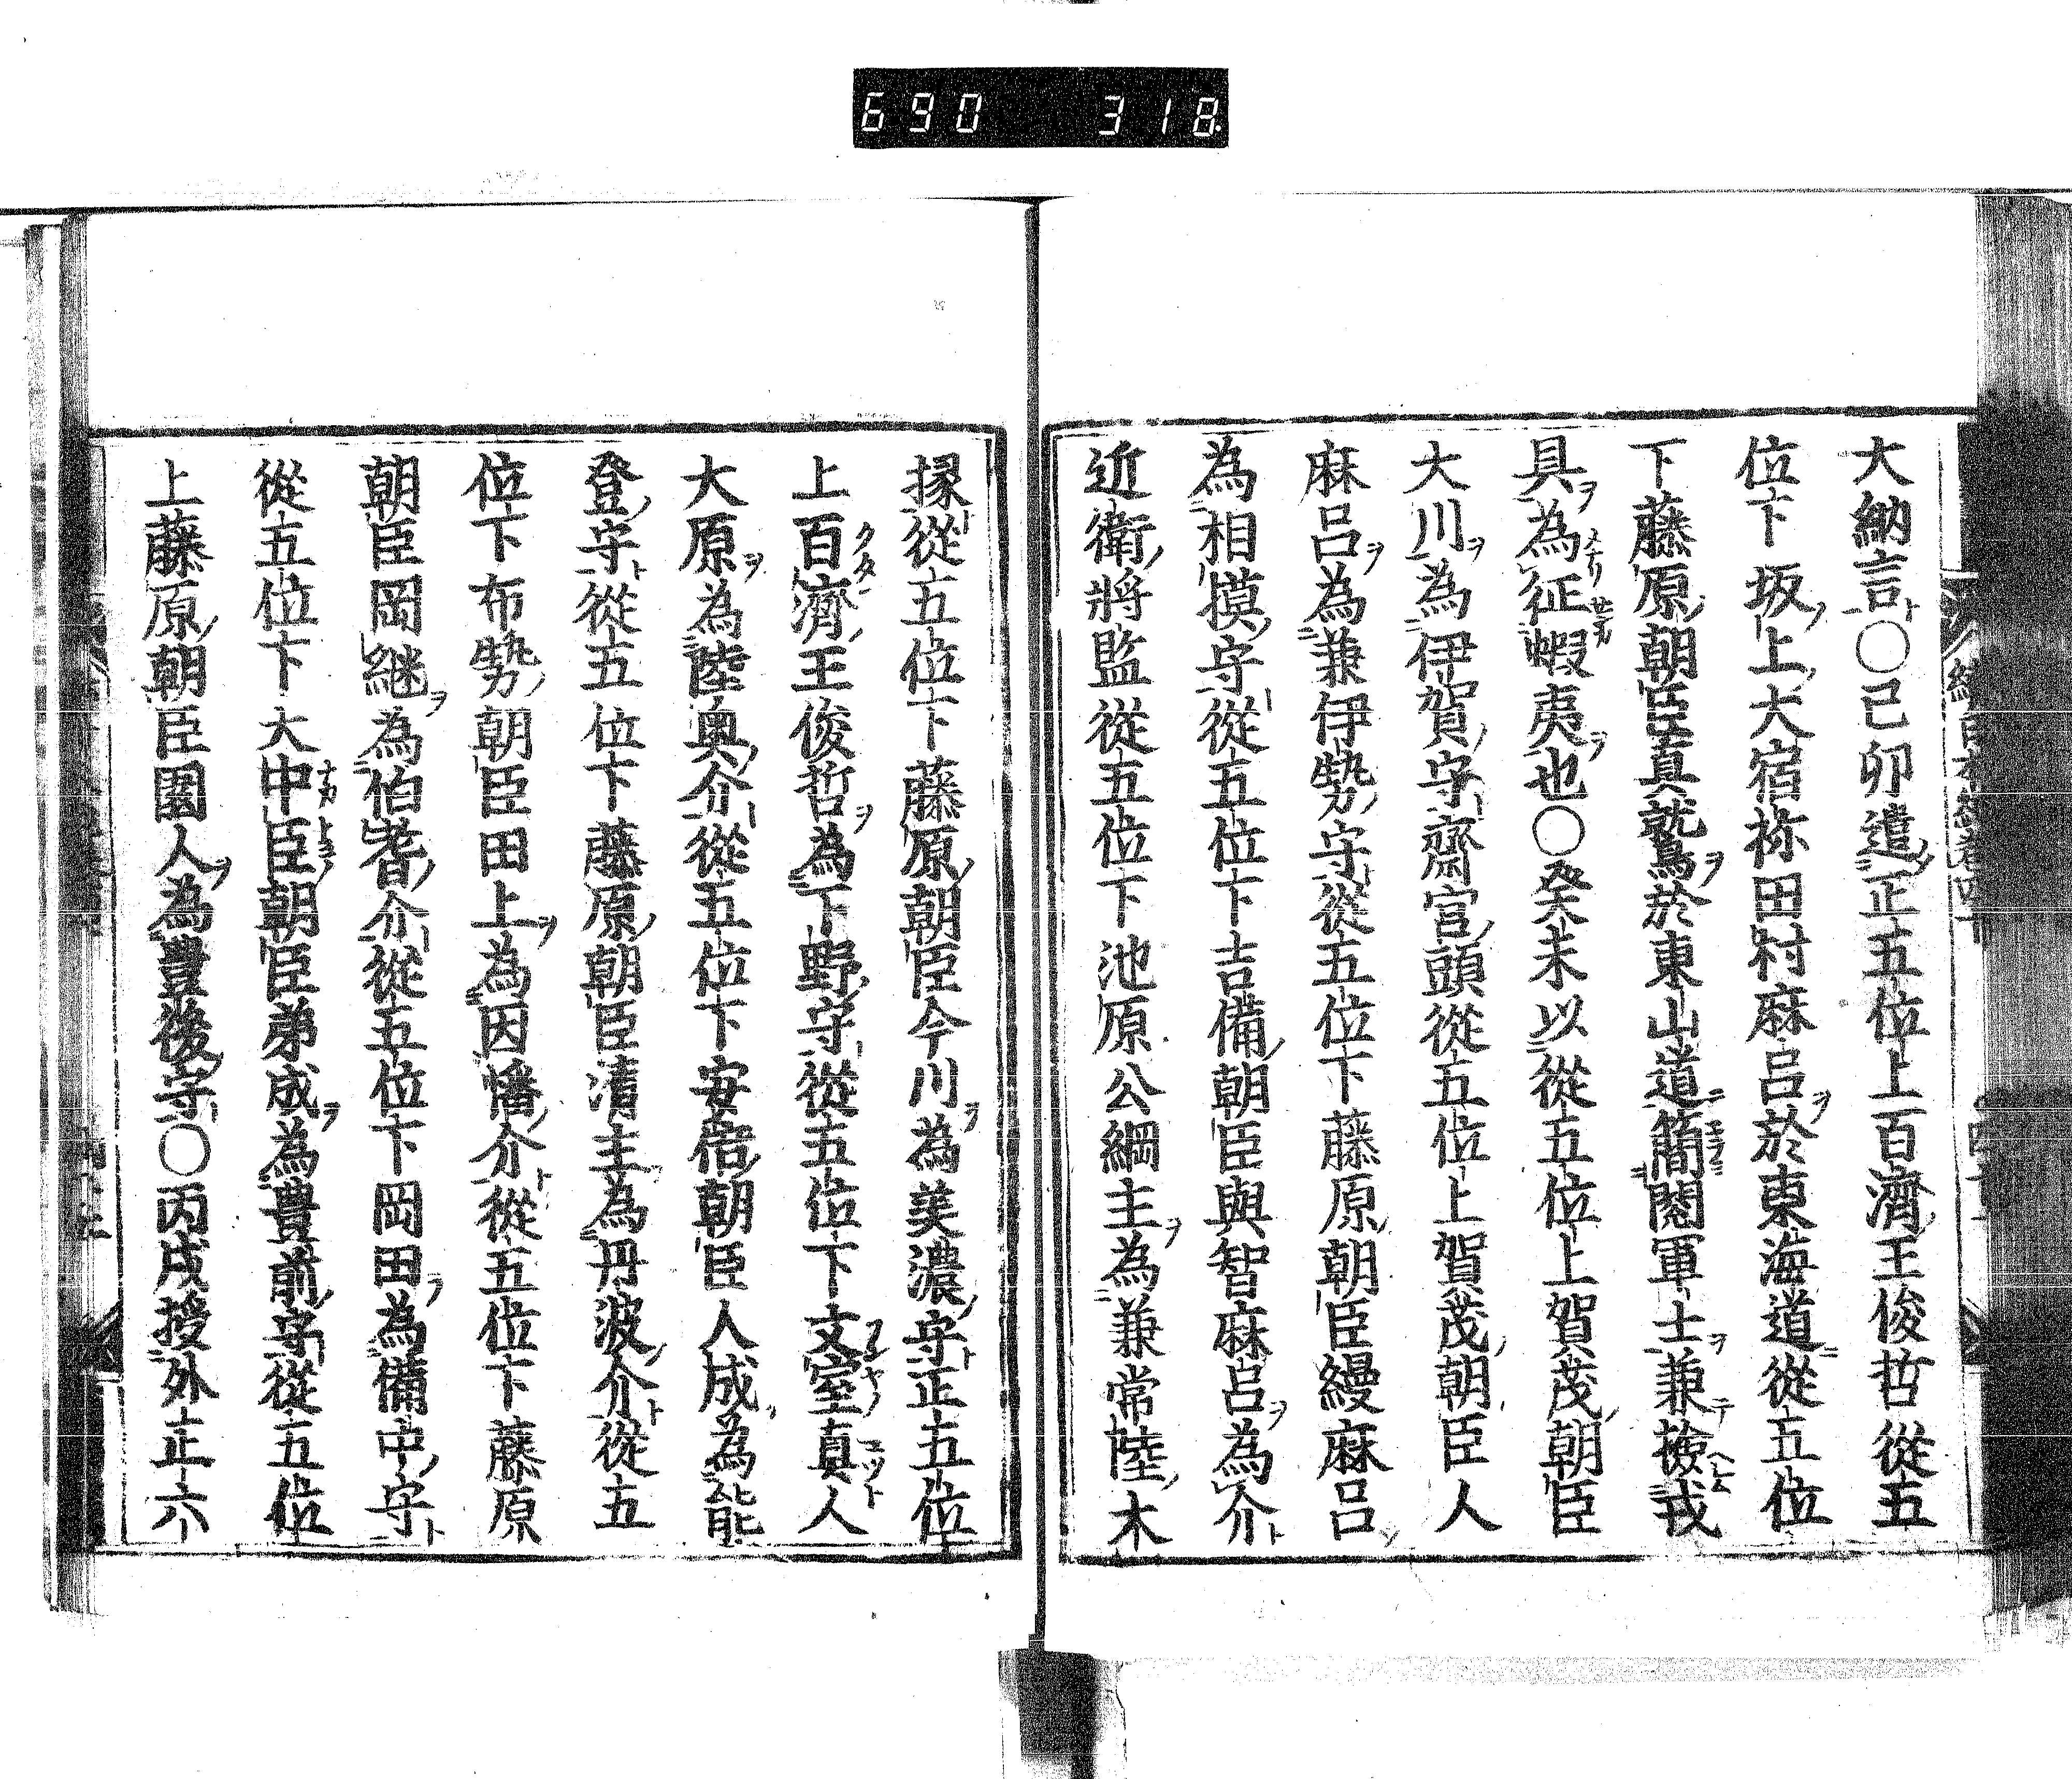 690 318
大納言○己卯遣正五位上百濟王俊哲從五
位下坂上大宿祢田村麻呂於東海道從五位
下藤原朝臣真鷲於東山道簡閲軍士兼撿戎
具為征蝦夷也○癸未以從五位上賀茂朝臣
大川為伊賀守齋宮頭從五位上賀茂朝臣人
麻呂為兼伊勢守從五位下藤原朝臣縵麻呂
為相摸守從五位下吉備朝臣與智麻呂為介
近衛將監從五位下池原公綱主為兼常陸大
掾從五位下藤原朝臣今川為美濃守正五位
上百濟王俊哲為下野守從五位下文室真人
大原為陸奧介從五位下安倍朝臣人成為能
登守從五位下藤原朝臣清主為丹波介從五
位下布勢朝臣田上為因幡介從五位下藤原
朝臣岡継為伯耆介從五位下岡田為備中守
從五位下大中臣朝臣弟成為豊前守從五位
上藤原朝臣園人為豐後守○丙戌授外正六